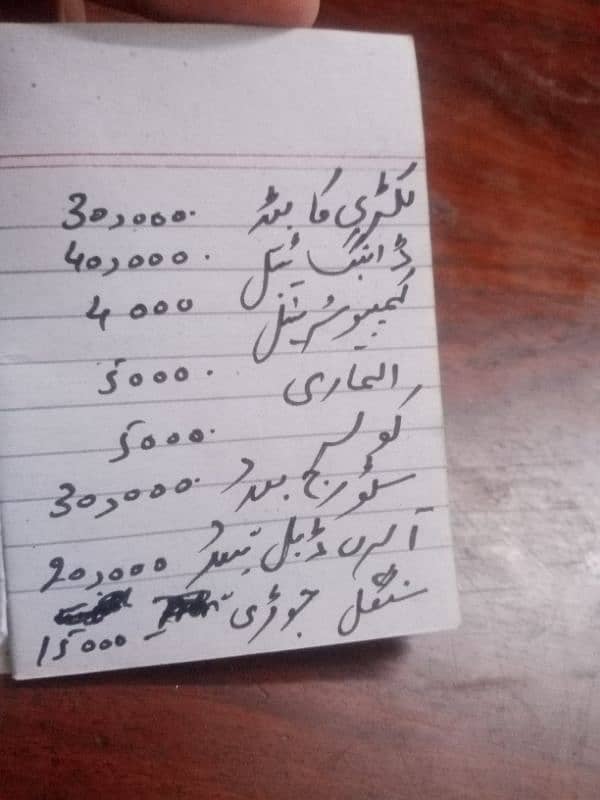 لکڑی کا بیڈ 30,000.
ڈائنگ ٹیبل 40,000.
کمپیوٹر ٹیبل 4000
الماری 5000.
کولر 5000.
سٹوریج بیڈ 30,000.
آئرن ڈبل بیڈ 20,000
سنگل جوڑی 15000